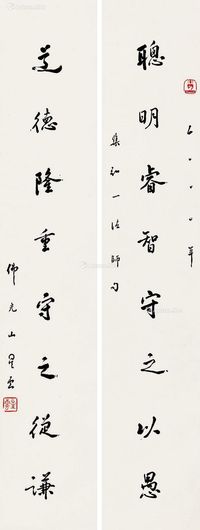 聰明睿智守之以愚
二〇〇〇年
集初一法師句
道德隆重守之從謙
佛光山星雲